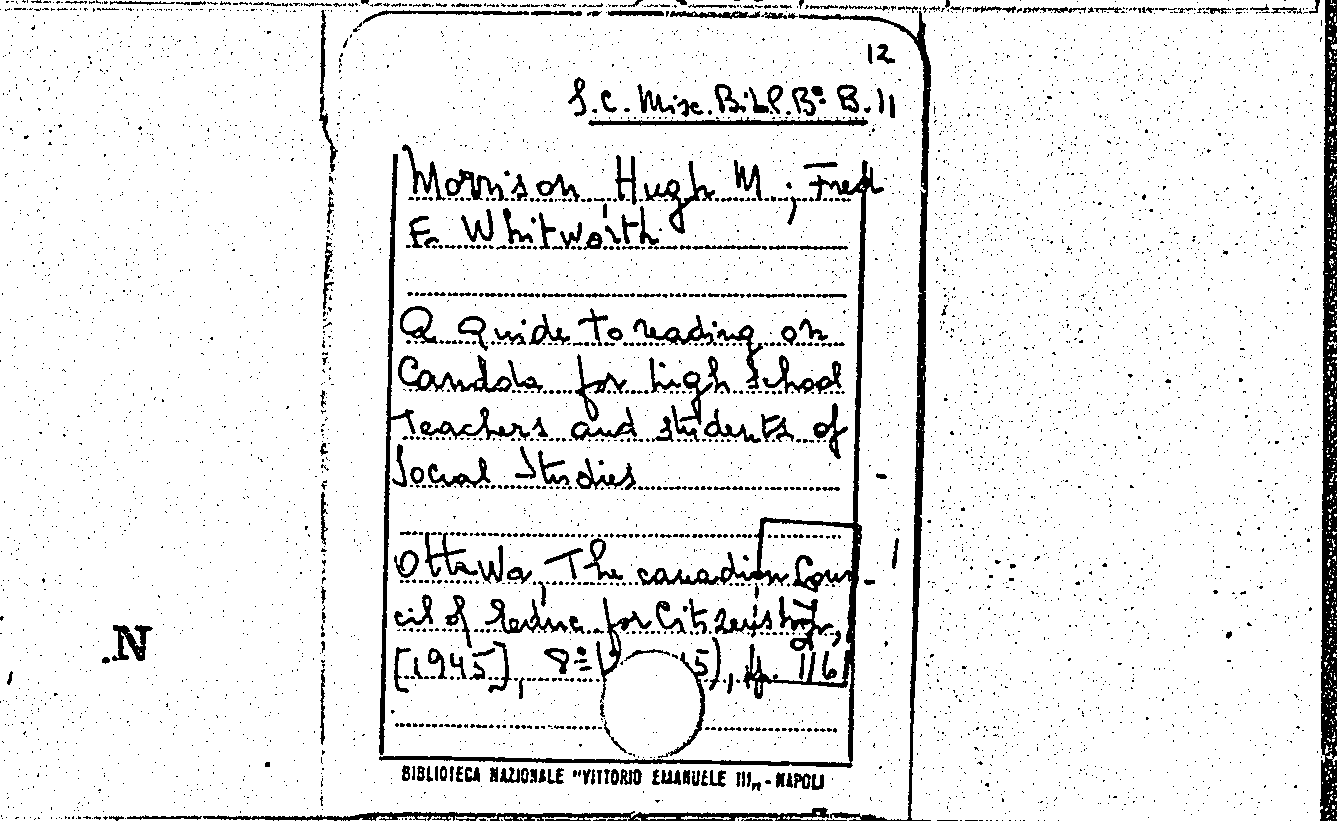 12
S.C. Misc. B. 
B. 11
Morrison Hugh M.; Fred
E. Whitworth
A Guide to reading on
Canada for high School
Teachers and students of
Social Studies
Ottawa, The canadian Coun-
cil of Educ. for Citizenship,
[1945], 8º 5), pp. 116
.N
BIBLIOTECA NAZIONALE "VITTORIO EMANUELE III„ - NAPOLI